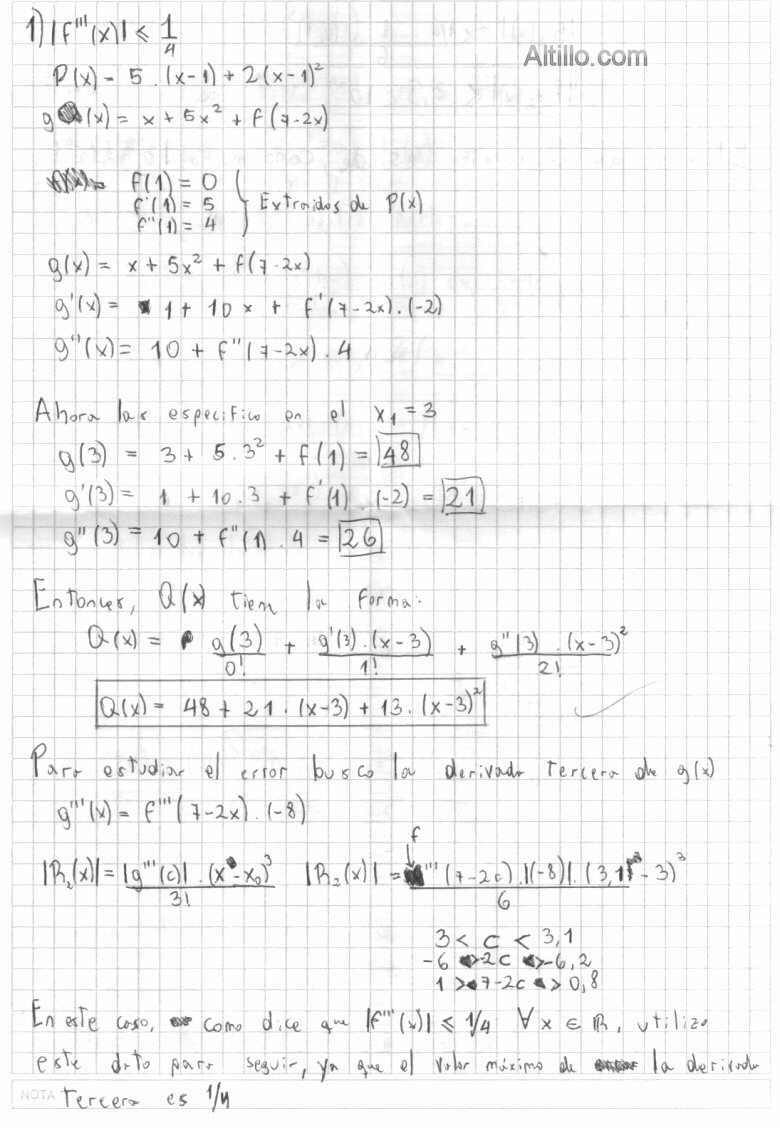 1) |f'''(x)| ≤ 1/4
Altillo.com
P(x) = 5 . (x-1) + 2(x-1)²
g(x) = x + 5x² + f(7-2x)
f(1) = 0
f'(1) = 5
f''(1) = 4
Extraidos de P(x)
g(x) = x + 5x² + f(7-2x)
g'(x) = 1 + 10x + f'(7-2x).(-2)
g''(x) = 10 + f''(7-2x) . 4
Ahora las especifico en el x₁ = 3
g(3) = 3 + 5.3² + f(1) = 48
g'(3) = 1 + 10.3 + f'(1) . (-2) = 21
g''(3) = 10 + f''(1) . 4 = 26
Entonces, Q(x) tiene la forma:
Q(x) = g(3)/0! + g'(3).(x-3)/1! + g''(3).(x-3)²/2!
Q(x) = 48 + 21 . (x-3) + 13 . (x-3)²
Para estudiar el error busco la derivada tercera de g(x)
g'''(x) = f'''(7-2x) . (-8)
|R₂(x)| = |g'''(c)| . (x-x₀)³/3! |R₂(x)| = f'''(7-2c) . |(-8)| . (3,1-3)³/6
f
3 < c < 3,1
-6 > -2c > -6,2
1 > 7-2c > 0,8
En este caso, como dice que |f'''(x)| ≤ 1/4 ∀ x ∈ R, utilizo
este dato para seguir, ya que el valor máximo de la derivada
NOTA tercera es 1/4